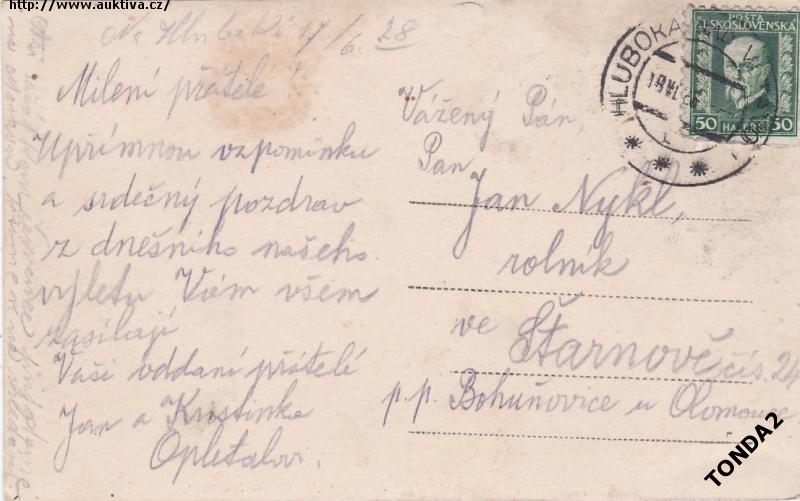 http://www.auktiva.cz/
Na Hluboké 17/6 28
Milení přátelé!
Upřímnou vzpomínku
a srdečný pozdrav
z dnešního našeho
výletu Vám všem
zasílají
Vaši oddaní přátelé
Jan a Kristinka
Opletalovi.
POŠTA
ČESKOSLOVENSKÁ
50 HALÉŘŮ 50
HLUBOKÁ
Vážený Pán,
Pan
Jan Nykl,
rolník
ve
Štarnově čís. 24
p. p. Bohuňovice u Olomouce
TONDA2